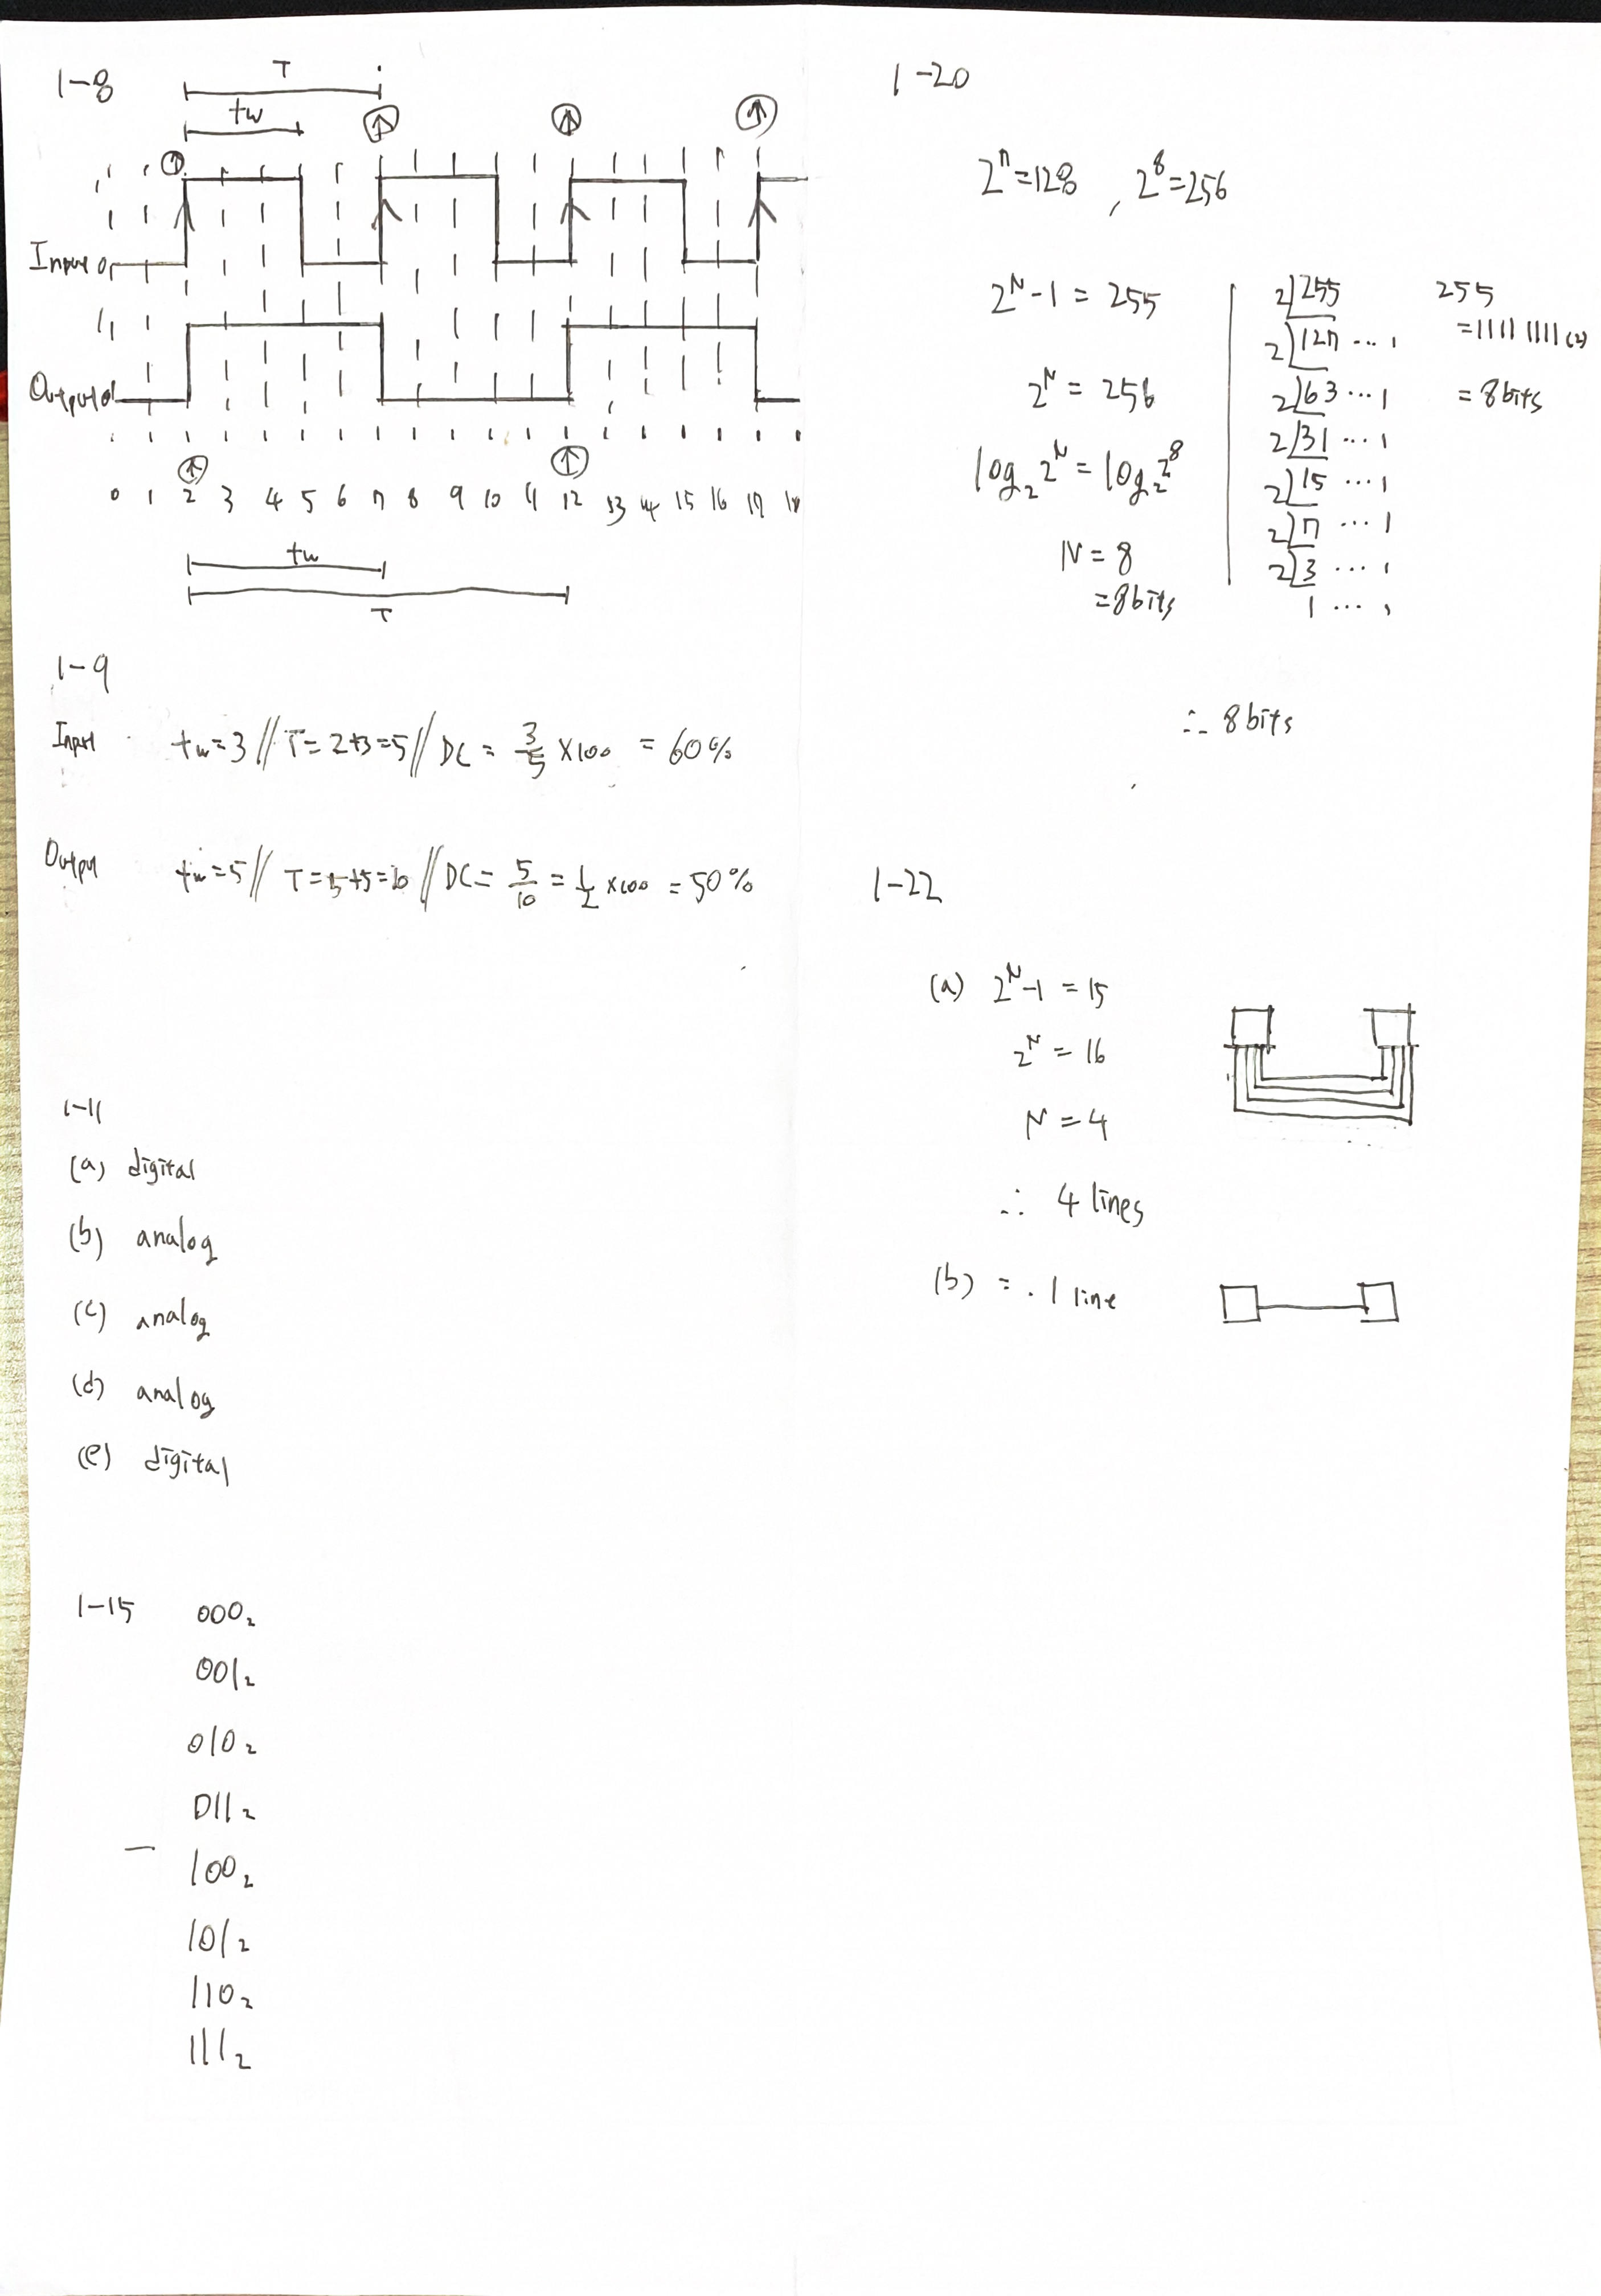 1-8
T
tw
Input 0
1
Output 0
0 1 2 3 4 5 6 7 8 9 10 11 12 13 14 15 16 17 18
tw
T
1-9
Input tw=3 // T=2+3=5 // DC = 3/5 ×100 = 60%
Output tw=5 // T=5+5=10 // DC= 5/10 = 1/2 ×100 = 50%
1-11
(a) digital
(b) analog
(c) analog
(d) analog
(e) digital
1-15 000₂
001₂
010₂
011₂
100₂
101₂
110₂
111₂
1-20
2⁷=128 , 2⁸=256
2ᴺ-1 = 255
2ᴺ = 256
log₂2ᴺ = log₂2⁸
N = 8
=8bits
2 255
2 127 ... 1
2 63 ... 1
2 31 ... 1
2 15 ... 1
2 7 ... 1
2 3 ... 1
1 ... 1
255
=1111 1111(2)
= 8bits
∴ 8bits
1-22
(a) 2ᴺ-1 = 15
2ᴺ = 16
N = 4
∴ 4 lines
(b) = . 1 line